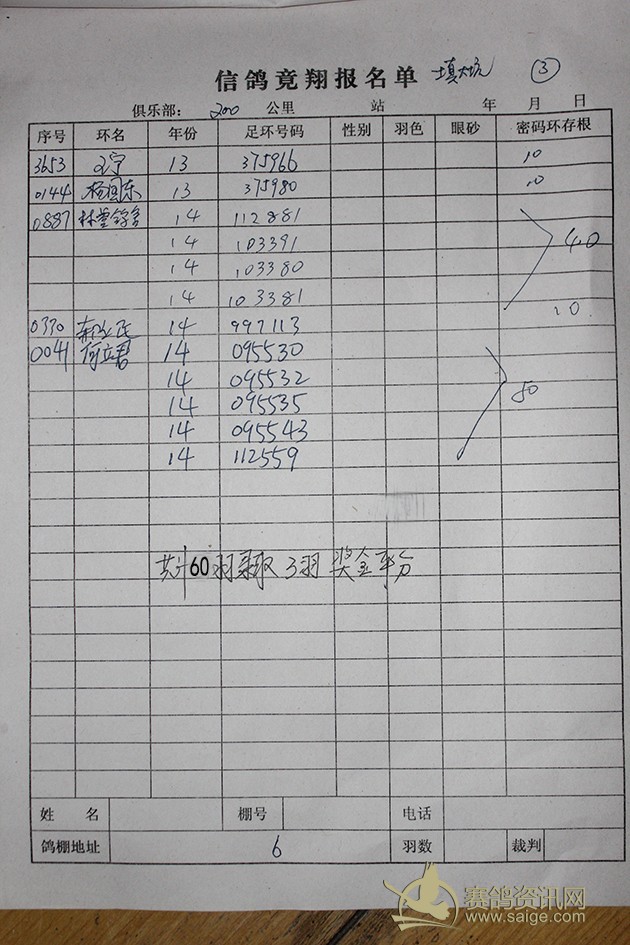 信鸽竟翔报名单 填大坑 ③
俱乐部: 200 公里 站 年 月 日
序号 环名 年份 足环号码 性别 羽色 眼砂 密码环存根
3653 13 375966 10
0144 杨国东 13 375980 10
0887 14 112881
14 103391 40
14 103380
14 103381
0370 14 997113 10
0041 何立君 14 095530
14 095532 50
14 095535
14 095543
14 112559
共计60羽录取3羽 奖金平分
姓 名 棚号 电话
鸽棚地址 6 羽数 裁判
赛鸽资讯网
www.saige.com